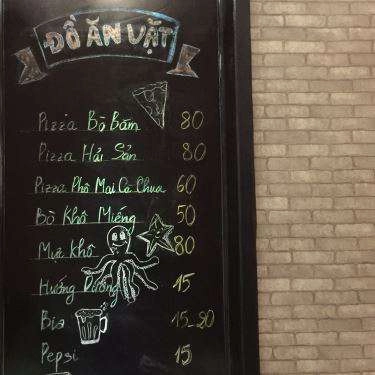 ĐỒ ĂN VẶT
Pizza Bò Băm 80
Pizza Hải Sản 80
Pizza Phô Mai Cà Chua 60
Bò Khô Miếng 50
Mực Khô 80
Hướng Dương 15
Bia 15_20
Pepsi 15